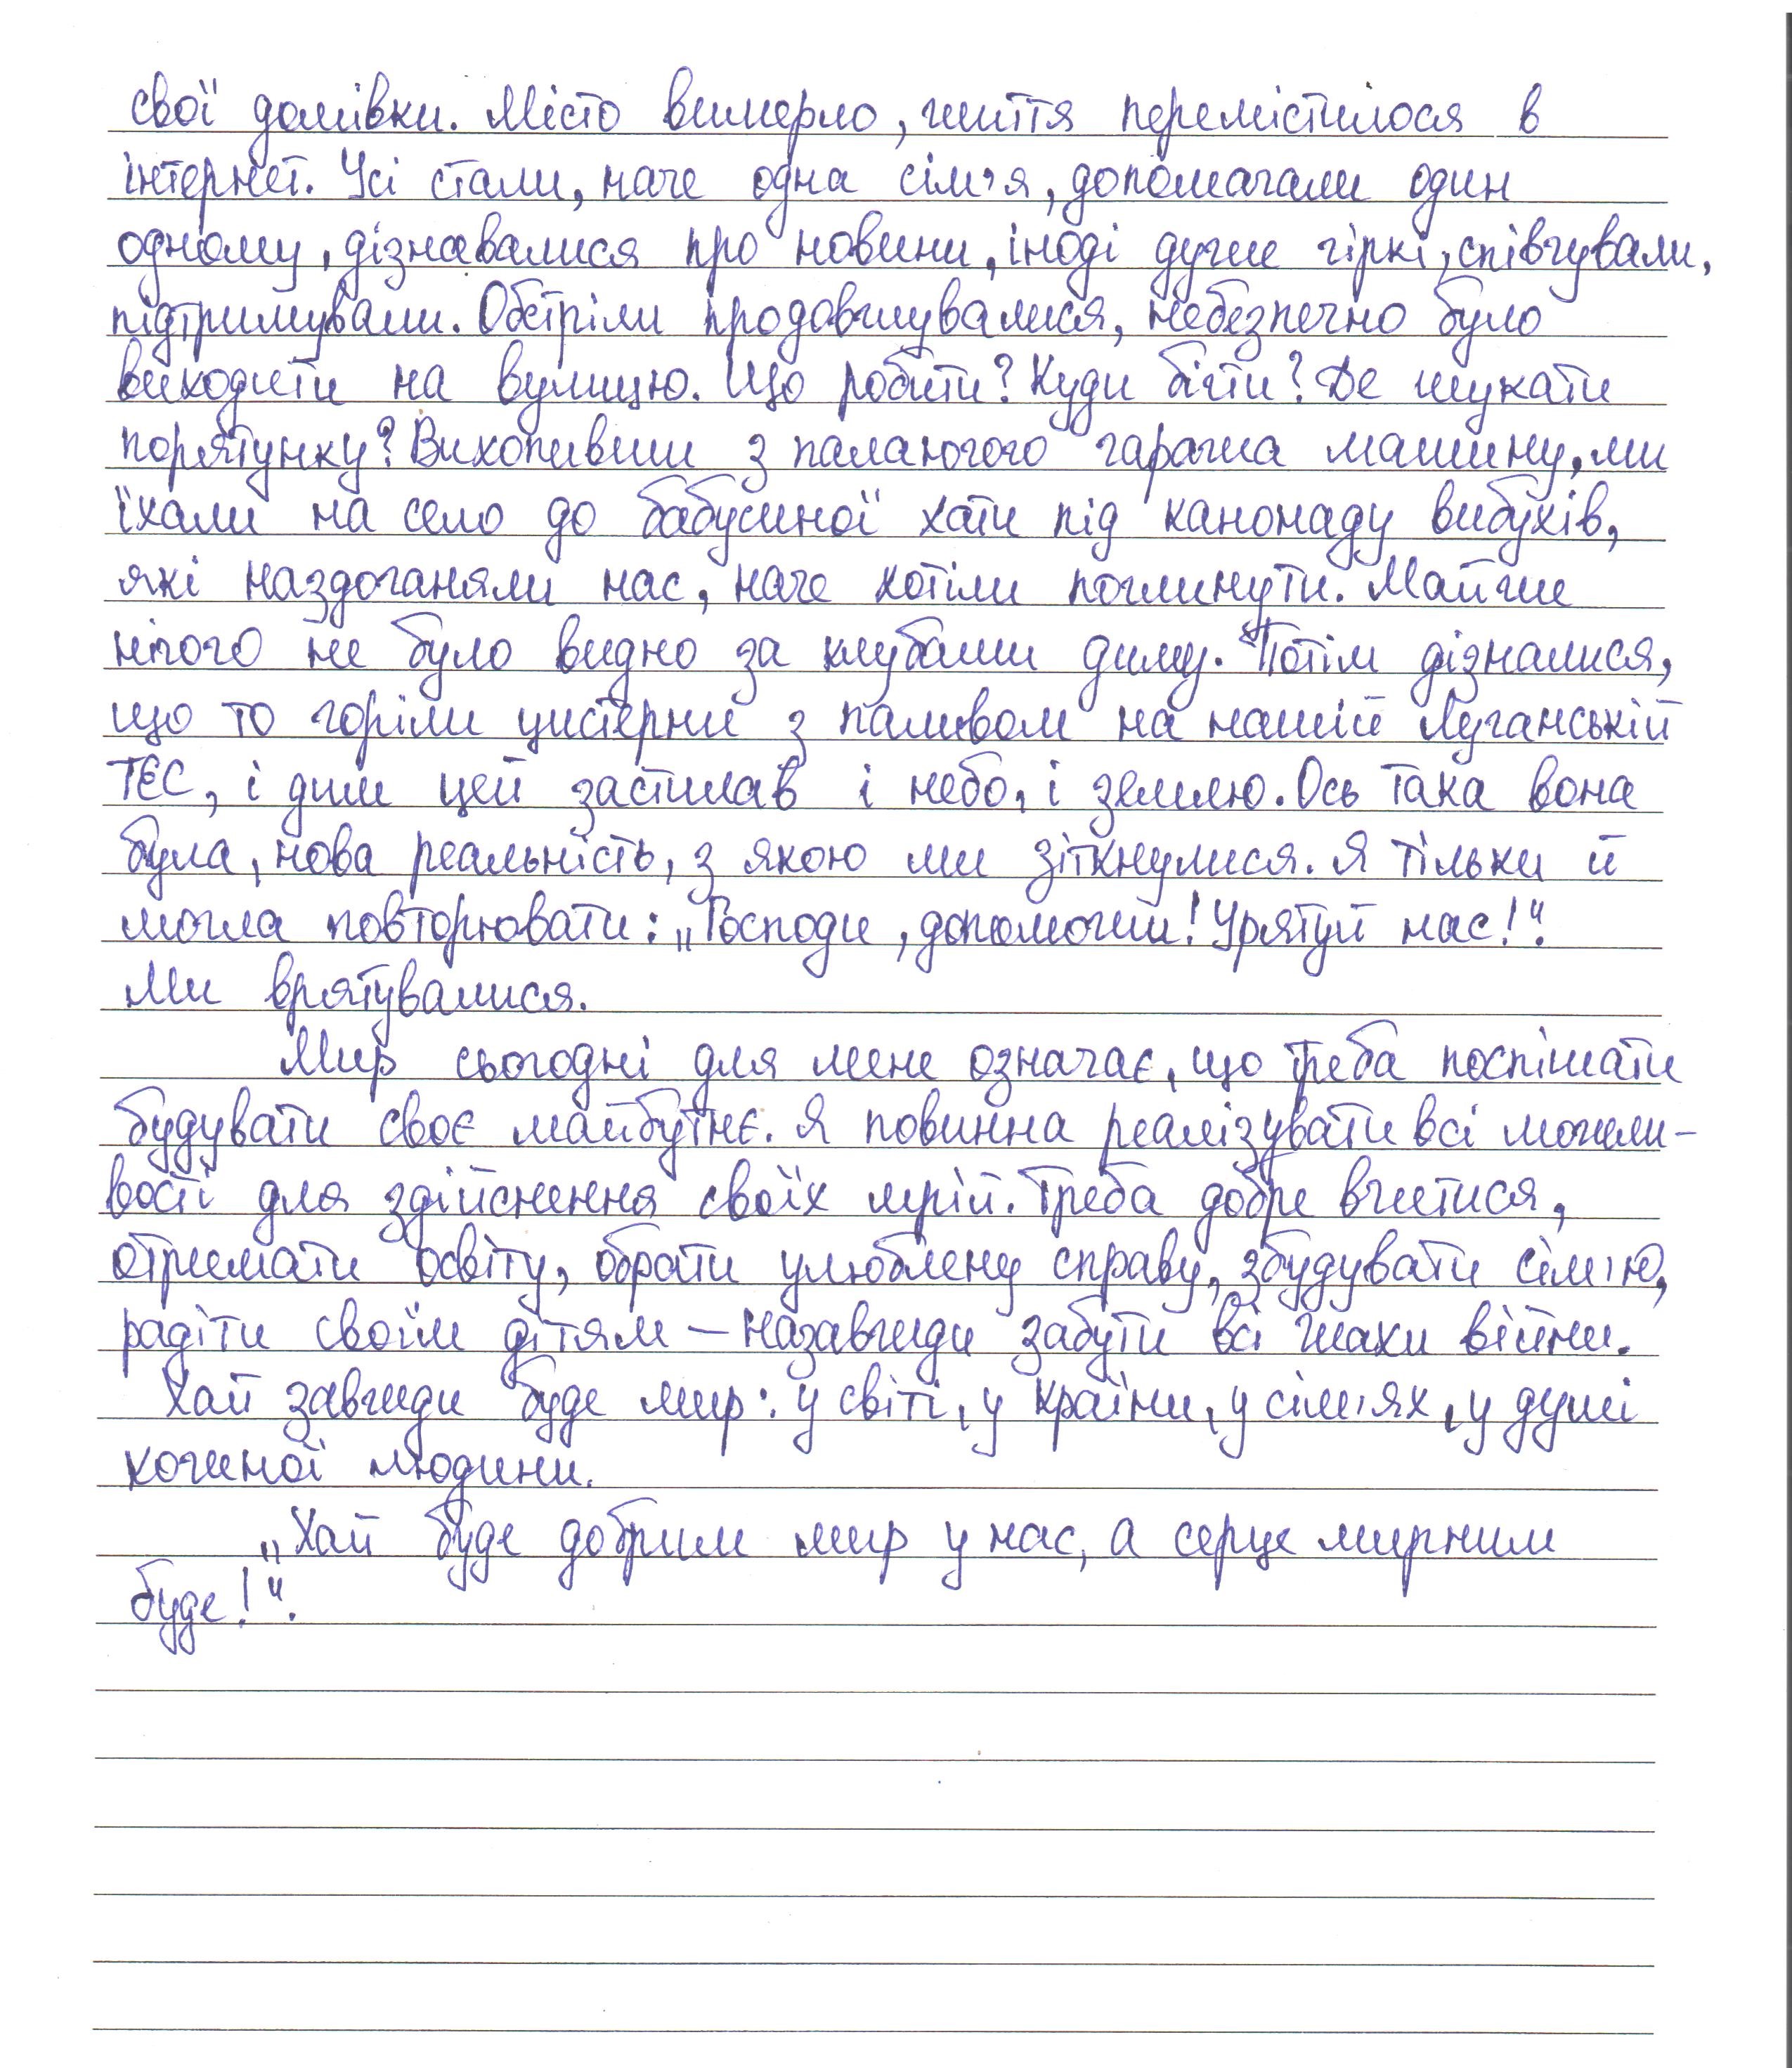 свої домівки. Місто вимерло, життя перемістилося в
інтернет. Усі стали, наче одна сім'я, допомагали один
одному, дізнавалися про новини, іноді дуже гіркі, співчували,
підтримували. Обстріли продовжувалися, небезпечно було
виходити на вулицю. Що робити? Куди бігти? Де шукати
порятунку? Вихопивши з палаючого гаража машину, ми
їхали на село до бабусиної хати під канонаду вибухів,
які наздоганяли нас, наче хотіли поглинути. Майже
нічого не було видно за клубами диму. Потім дізналися,
що то горіли цистерни з паливом на нашій Луганській
ТЕС, і дим цей застилав і небо, і землю. Ось така вона
була, нова реальність, з якою ми зіткнулися. Я тільки й
могла повторювати: „Господи, допоможи! Урятуй нас!“.
Ми врятувалися.
Мир сьогодні для мене означає, що треба поспішати
будувати своє майбутнє. Я повинна реалізувати всі можли-
вості для здійснення своїх мрій. Треба добре вчитися,
отримати освіту, обрати улюблену справу, збудувати сім'ю,
радіти своїм дітям – назавжди забути всі жахи війни.
Хай завжди буде мир: у світі, у країни, у сім'ях, у душі
кожної людини.
„Хай буде добрим мир у нас, а серце мирним
буде!“.